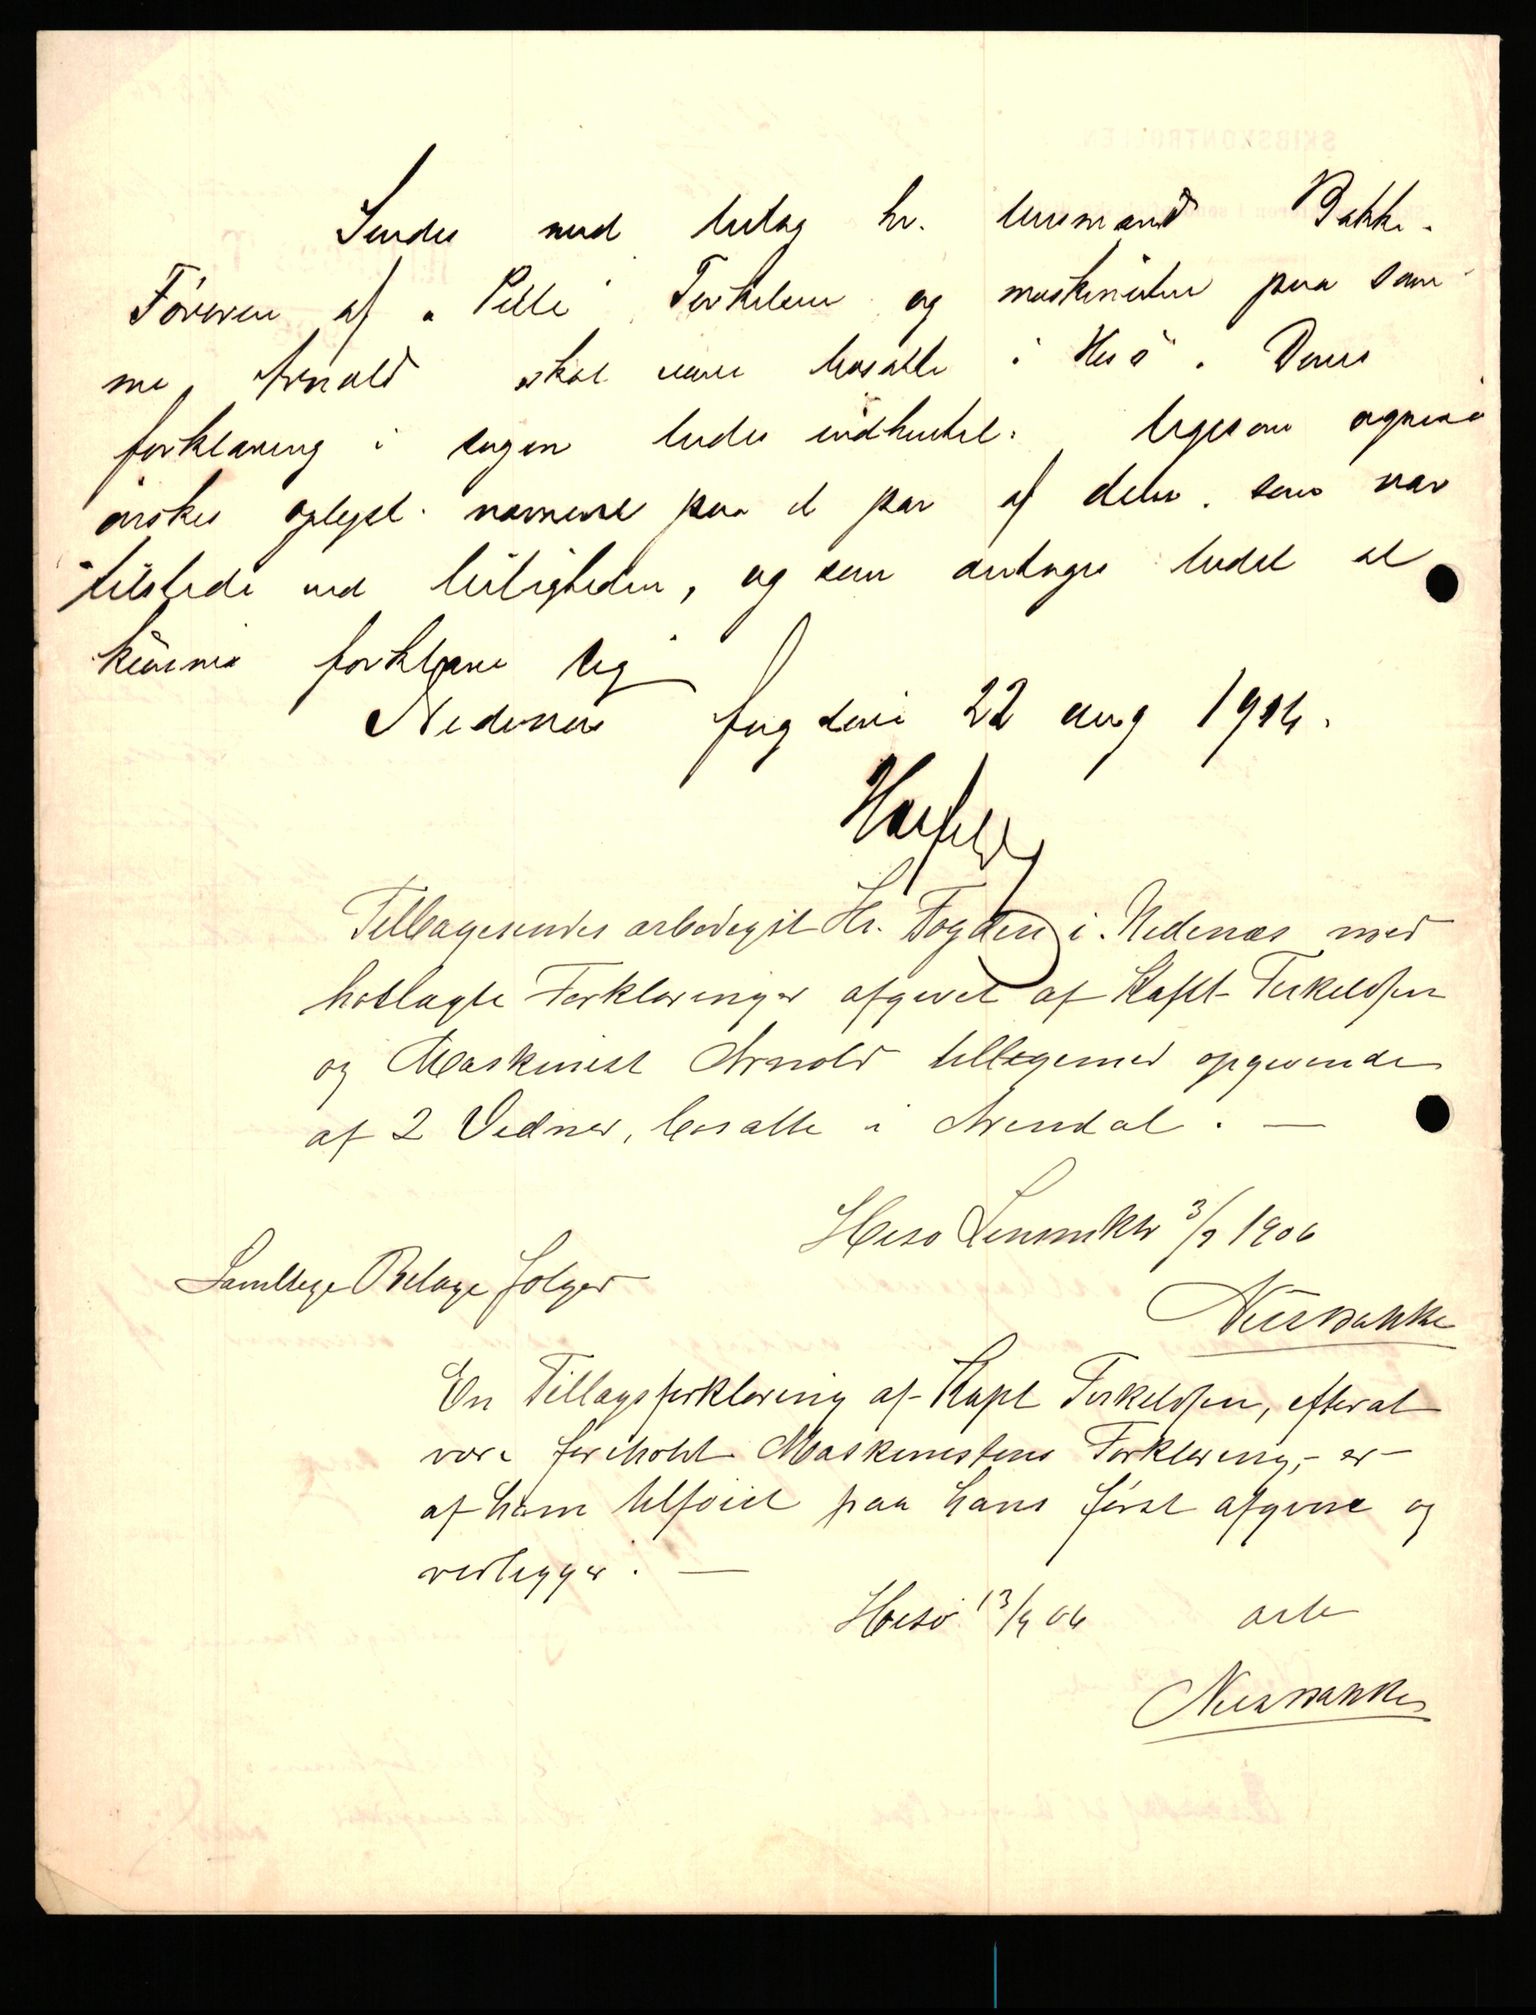 Sendes med bilag hr. lensmand Bakke.
Föreren af "Pelle" Terkelsen og maskinisten paa sam
me, Arnold skal være bosatte i Hisö. Deres
forklaring i sagen bedes indhentet. ligesom ogsaa
önskes oplyst navnene paa et par af dem, som var
tilstede ved leiligheden, og som antages bedst at
kunne forklare sig
Nedenes fogderi 22 aug 1906.
Tilbagesendes ærbødigst Hr. Fogden i Nedenæs med
hoslagte Forklaringer afgivet af Kapt. Terkeldsen
og Maskinist Arnold tilligemed opgivende
af 2 Vidner, bosatte i Arendal. —
Hisø Lensmktr 3/9 1906
Samtlige Bilage følger
Nilsbakke
En Tillægsforklaring af Kapt Terkeldsen, efter at
være foreholdt Maskinistens Forklaring, - er
af ham tilføiet paa hans først afgivne og
vedlægges. —
Hisø 13/9 06 ærb
Nilsbakke
SKIBSKONTROLLEN